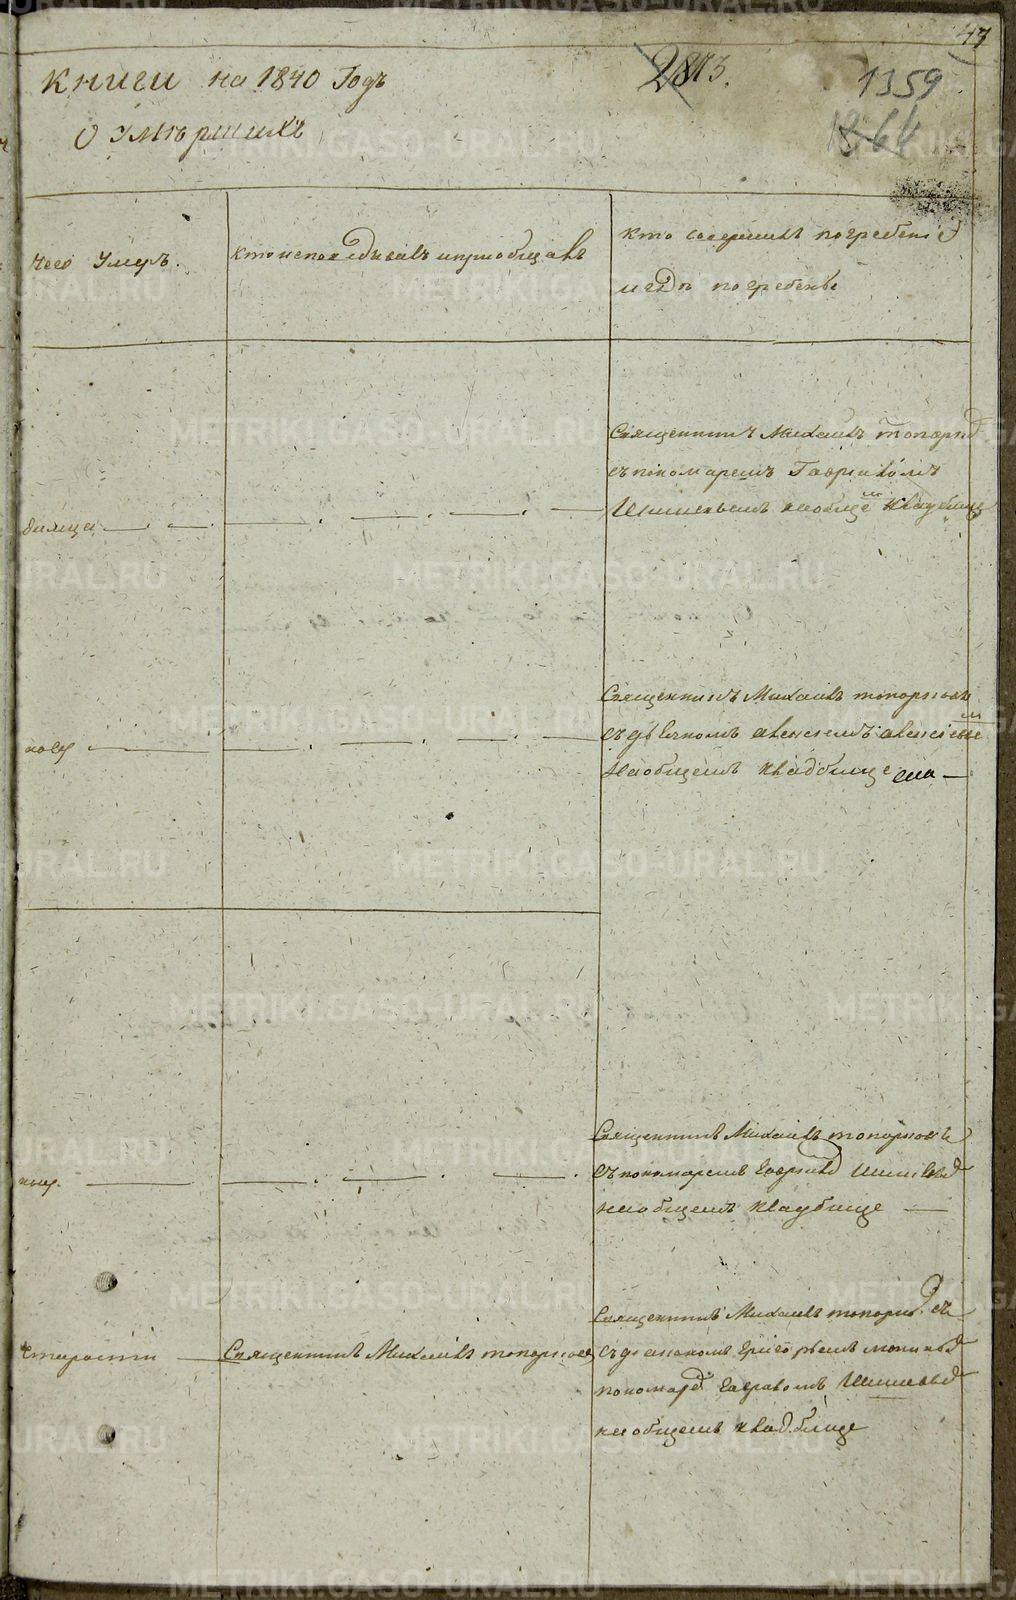 47
Книги на 1840 Годъ
2813.
1359
1364
О Умѣршихъ
чего Умеръ.
кто исповѣдывалъ ипріобщалъ
кто совершилъ погребеніе
игдѣ погребены
Священникъ Михаилъ топорков
съ пономаремъ Гавриломъ
Шишевымъ наобщемъ кладбище
Священникъ Михаилъ топорковъ
съ дьячкомъ алексеемъ алексеевым
Наобщемъ кладбище
Священникъ Михаилъ топорковъ
Съ пономаремъ Гаврилой Шишевы
наобщемъ кладбище
Священникъ Михаилъ топорков съ
старости
Священникъ Михаилъ топорковъ
съ диакономъ Григорьемъ
пономаре Гавриломъ Шишевы
наобщемъ кладбище
METRIKI.GASO-URAL.RU